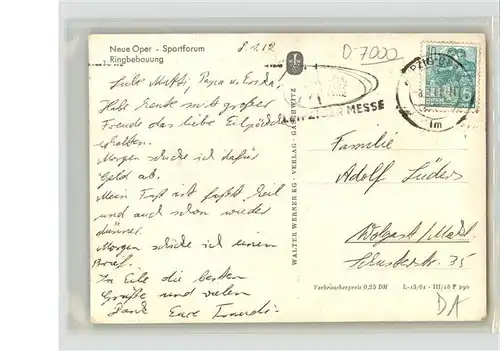 Neue Oper - Sportforum
Ringbebauung
8.1.12
D-7000
Liebe Mutti, Papa u.
Habe heute mit großer
Freude das liebe Eilpäckchen
erhalten.
Morgen schicke ich dafür
Geld ab.
Mein Fuß ist fast heil
und auch schon wieder
dünner.
Morgen schicke ich einen
Brief.
In Eile die besten
Grüße und vielen
Dank Eure
WALTER WERNER KG - VERLAG - GASCHWITZ
LEIPZIGER MESSE
Familie
Adolf Lüders
Wolgast/Meckl.
Schusterstr. 35
Verbraucherpreis 0,25 DM
I.-13/61 - III/18 F 290
DA